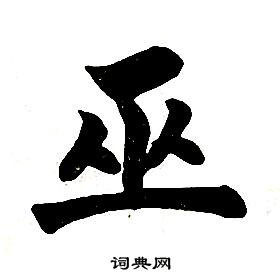 巫
词典网